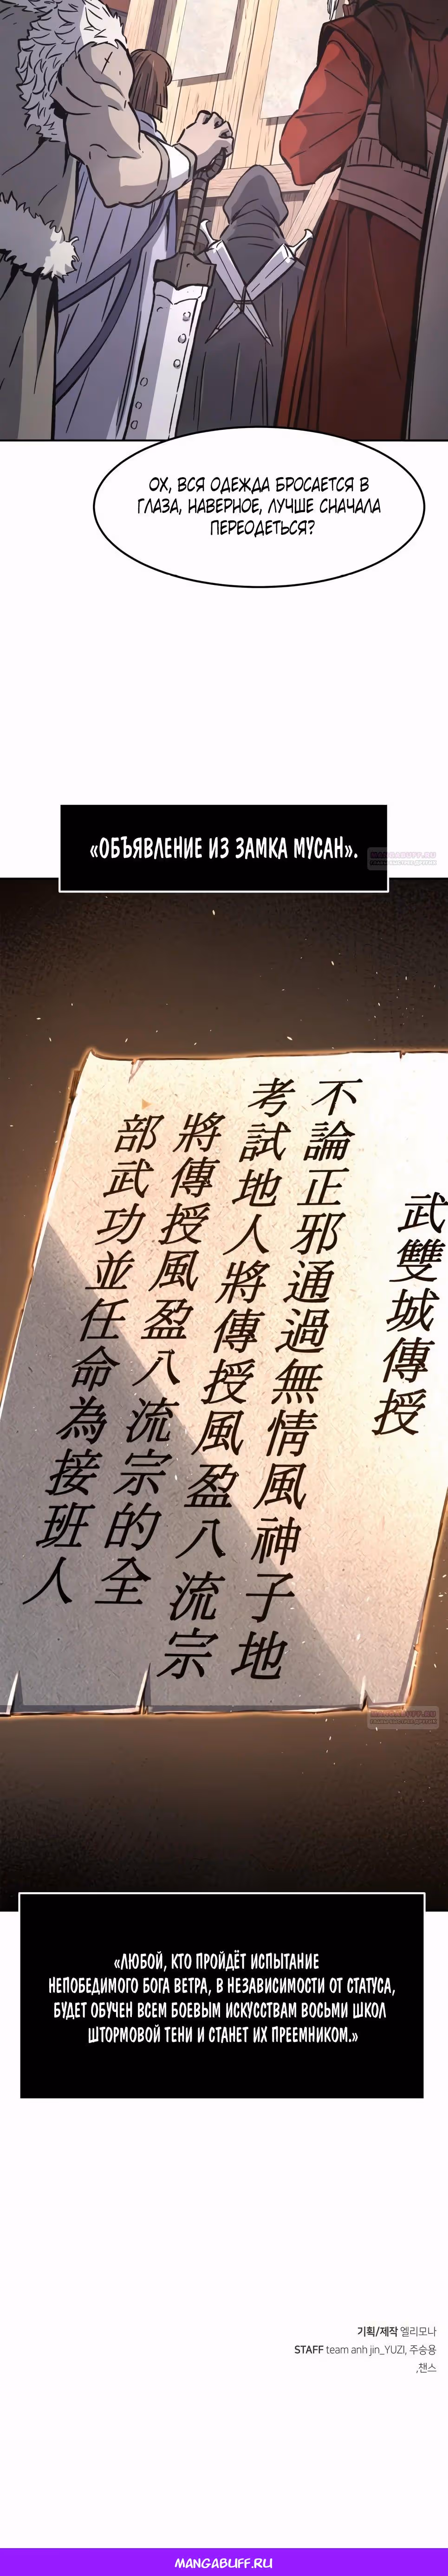 ОХ, ВСЯ ОДЕЖДА БРОСАЕТСЯ В
ГЛАЗА, НАВЕРНОЕ, ЛУЧШЕ СНАЧАЛА
ПЕРЕОДЕТЬСЯ?
«ОБЪЯВЛЕНИЕ ИЗ ЗАМКА МУСАН».
MANGABUFF.RU
武雙城傳授
不論正邪通過無情風神子地
考試地人將傳授風盈八流宗
將傳授風盈八流宗的全
部武功並任命為接班人
MANGABUFF.RU
«ЛЮБОЙ, КТО ПРОЙДЁТ ИСПЫТАНИЕ
НЕПОБЕДИМОГО БОГА ВЕТРА, В НЕЗАВИСИМОСТИ ОТ СТАТУСА,
БУДЕТ ОБУЧЕН ВСЕМ БОЕВЫМ ИСКУССТВАМ ВОСЬМИ ШКОЛ
ШТОРМОВОЙ ТЕНИ И СТАНЕТ ИХ ПРЕЕМНИКОМ.»
기획/제작 엘리모나
STAFF team anh jin_YUZI, 주승용
,챈스
MANGABUFF.RU